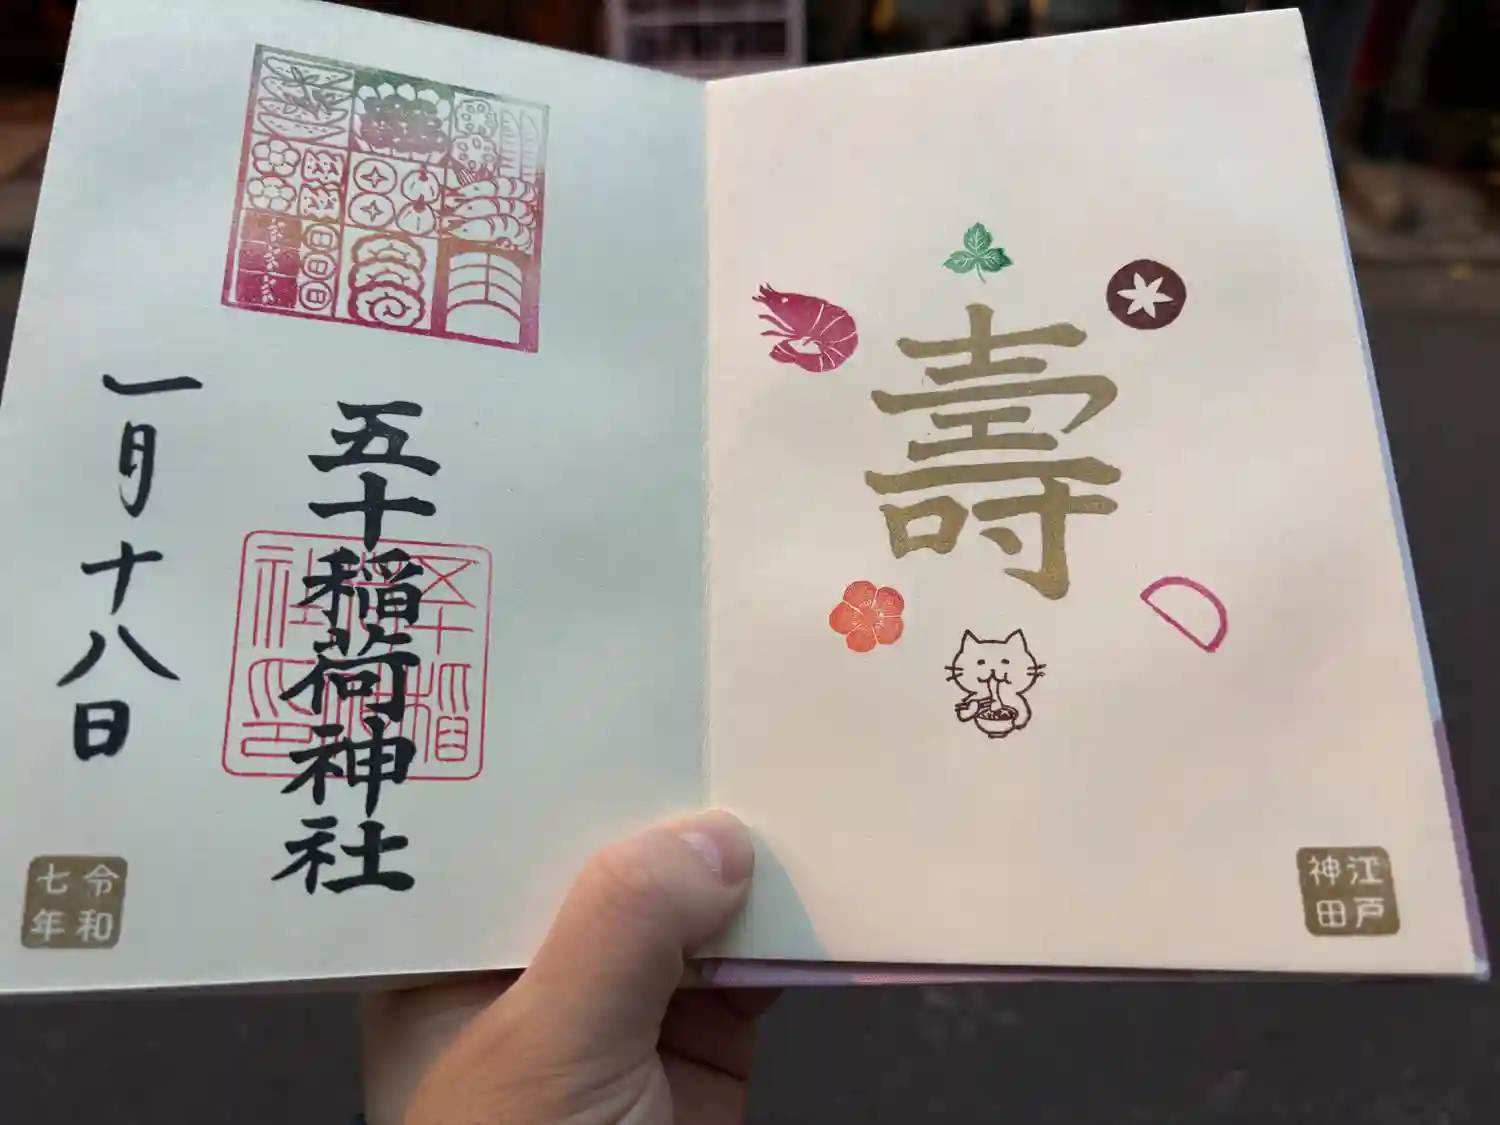 壽
江戸
神田
五十稲荷神社
一月十八日
令和
七年